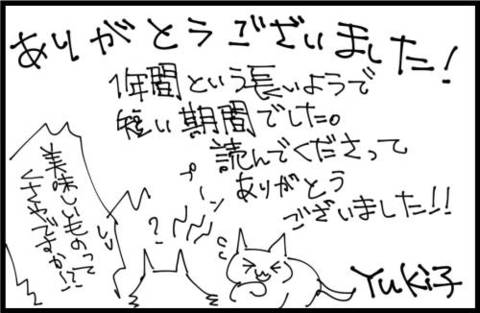 ありがとうございました!
1年間という長いようで
短い期間でした。
読んでくださって
ありがとう
ございました!!
プーン
?
美味しいものって
くさやですか!?
Yuki子